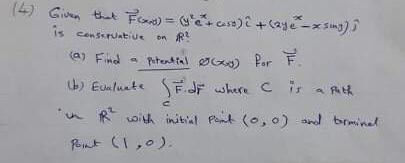 (4) Given that F⃗(x,y) = (y²eˣ + cosy) î + (2yeˣ − x siny) ĵ
is conservative on ℝ².
(a) Find a potential ∅(x,y) for F⃗.
(b) Evaluate ∫_C F⃗.dr⃗ where C is a Path
in ℝ² with initial Point (0,0) and terminal
Point (1,0).